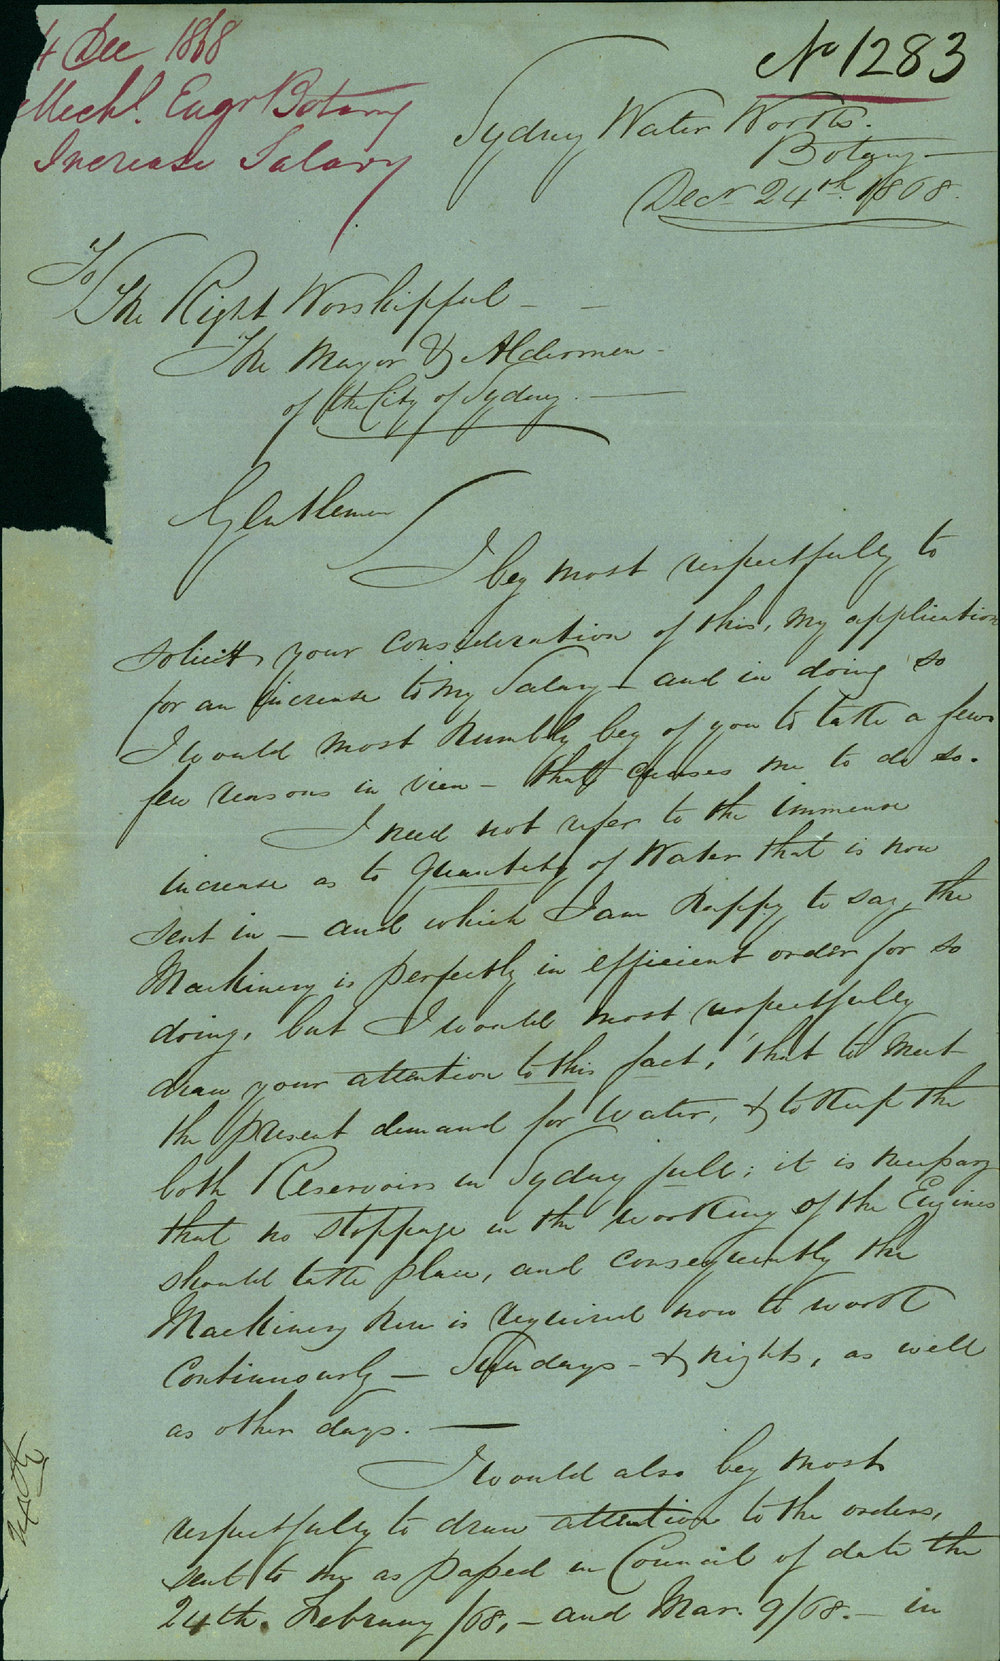 4 Dec 1868
Mechl. Engr Botany
Increase Salary
No 1283
Sydney Water Works.
Botany
Decr 24th 1868.
To
The Right Worshipful
The Mayor & Aldermen
of the City of Sydney.
Gentlemen
I beg most respectfully to
solicit your consideration of this, my application
for an increase to my Salary – and in doing so
I would most humbly beg of you to take a few
few reasons in view – that causes me to do so.
I need not refer to the immense
increase as to Quantity of Water that is now
sent in – and which I am happy to say, the
Machinery is perfectly in efficient order for so
doing, but I would most respectfully
draw your attention to this fact, that to meet
the present demand for Water, & to keep the
both Reservoirs in Sydney full; it is necessary
that no stoppage in the working of the Engines
should take place, and consequently the
Machinery here is required now to work
Continuously – Sundays – & nights, as well
as other days.
I would also beg most
respectfully to draw attention to the orders,
sent to me as passed in Council of date the
24th. February /68, – and Mar. 9/68. – in